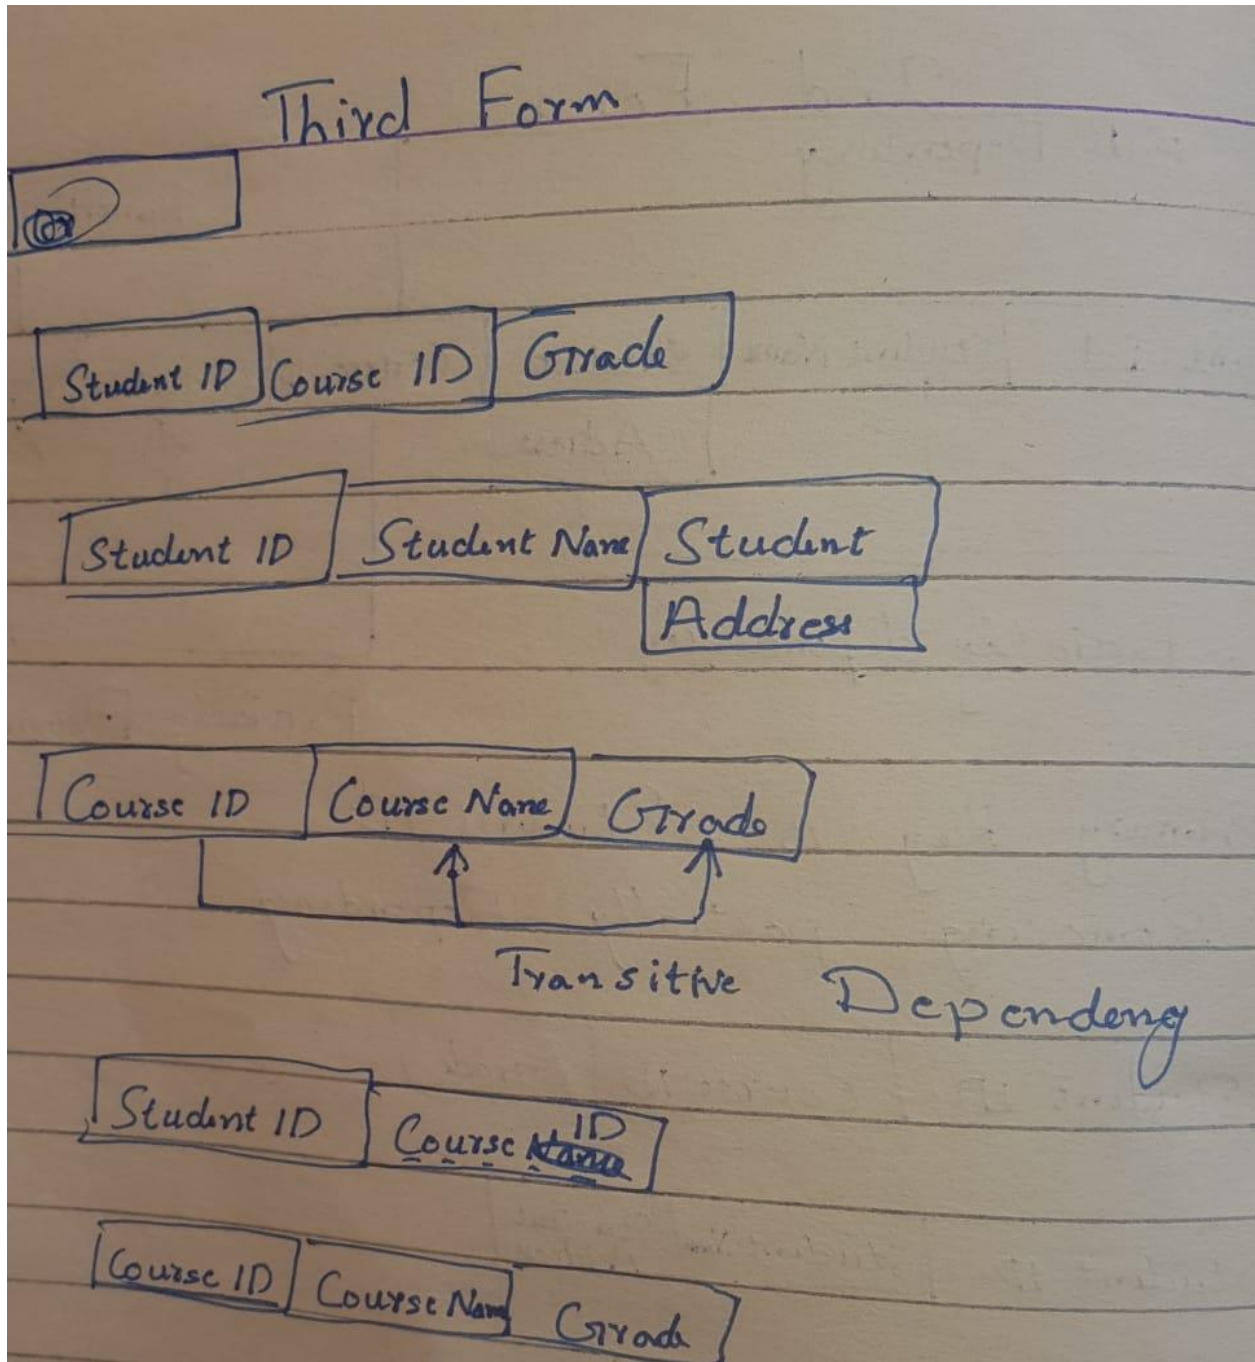 Third Form
Student ID Course ID Grade
Student ID Student Name Student
Address
Course ID Course Name Grade
Transitive Dependeny
Student ID Course ID
Course ID Course Name Grade